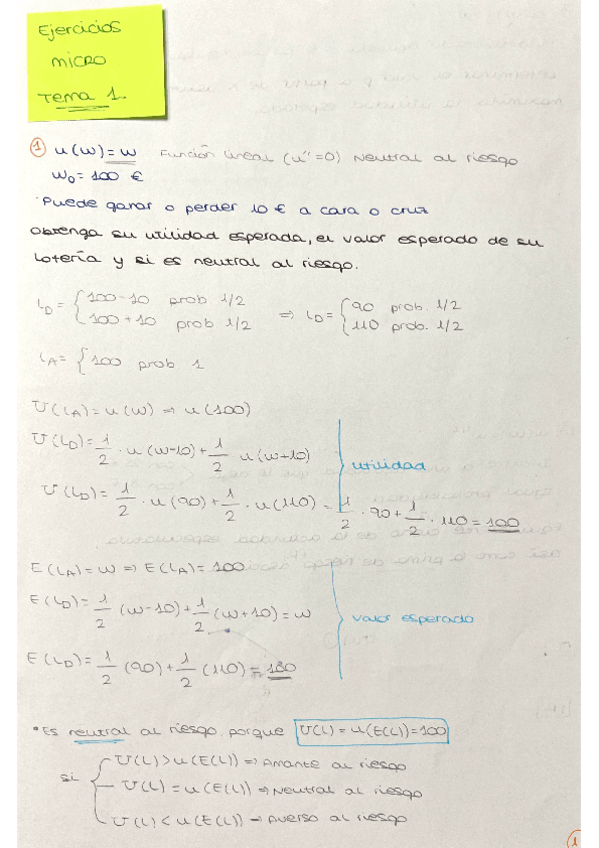 Ejercicios
micro
Tema 1.
① u(w)=w Función lineal (u''=0) Neutral al riesgo
w₀=100 €
·Puede ganar o perder 10 € a cara o cruz
obtenga su utilidad esperada, el valor esperado de su
Lotería y si es neutral al riesgo.
L_D = { 100-10 prob 1/2 ⇒ L_D = { 90 prob. 1/2
100+10 prob 1/2 110 prob. 1/2
L_A = { 100 prob 1
U(L_A)=u(w) ⇒ u(100)
U(L_D)=1/2 · u(w-10)+1/2 u(w+10)
utilidad
U(L_D)=1/2 · u(90)+1/2 · u(110)=1/2 · 90+1/2 · 110=100
E(L_A)=w ⇒ E(L_A)=100
E(L_D)=1/2 (w-10)+1/2 (w+10)=w
valor esperado
E(L_D)=1/2 (90)+1/2 (110)=100
*Es neutral al riesgo porque U(L)=u(E(L))=100
si { U(L)>u(E(L)) ⇒ Amante al riesgo
U(L)=u(E(L)) ⇒ Neutral al riesgo
U(L)<u(E(L)) → Averso al riesgo
1